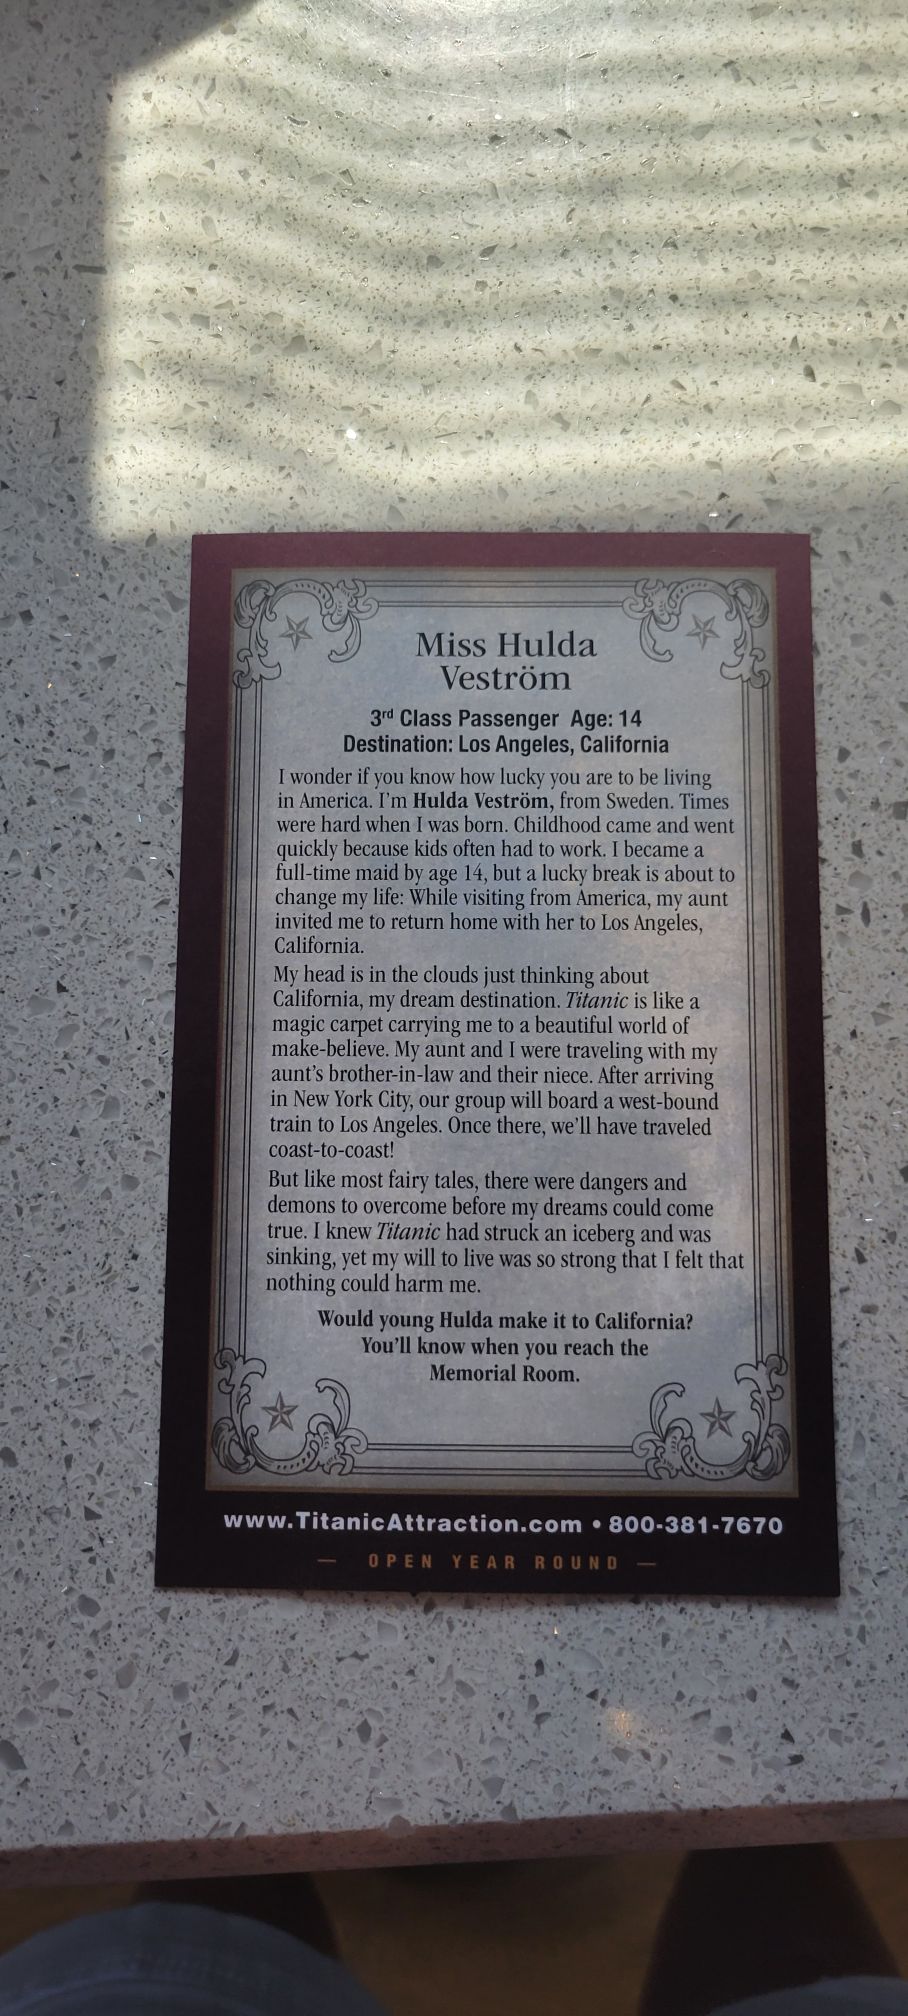 Miss Hulda
Veström
3rd Class Passenger Age: 14
Destination: Los Angeles, California
I wonder if you know how lucky you are to be living
in America. I'm Hulda Veström, from Sweden. Times
were hard when I was born. Childhood came and went
quickly because kids often had to work. I became a
full-time maid by age 14, but a lucky break is about to
change my life: While visiting from America, my aunt
invited me to return home with her to Los Angeles,
California.
My head is in the clouds just thinking about
California, my dream destination. Titanic is like a
magic carpet carrying me to a beautiful world of
make-believe. My aunt and I were traveling with my
aunt's brother-in-law and their niece. After arriving
in New York City, our group will board a west-bound
train to Los Angeles. Once there, we'll have traveled
coast-to-coast!
But like most fairy tales, there were dangers and
demons to overcome before my dreams could come
true. I knew Titanic had struck an iceberg and was
sinking, yet my will to live was so strong that I felt that
nothing could harm me.
Would young Hulda make it to California?
You'll know when you reach the
Memorial Room.
www.TitanicAttraction.com • 800-381-7670
— OPEN YEAR ROUND —